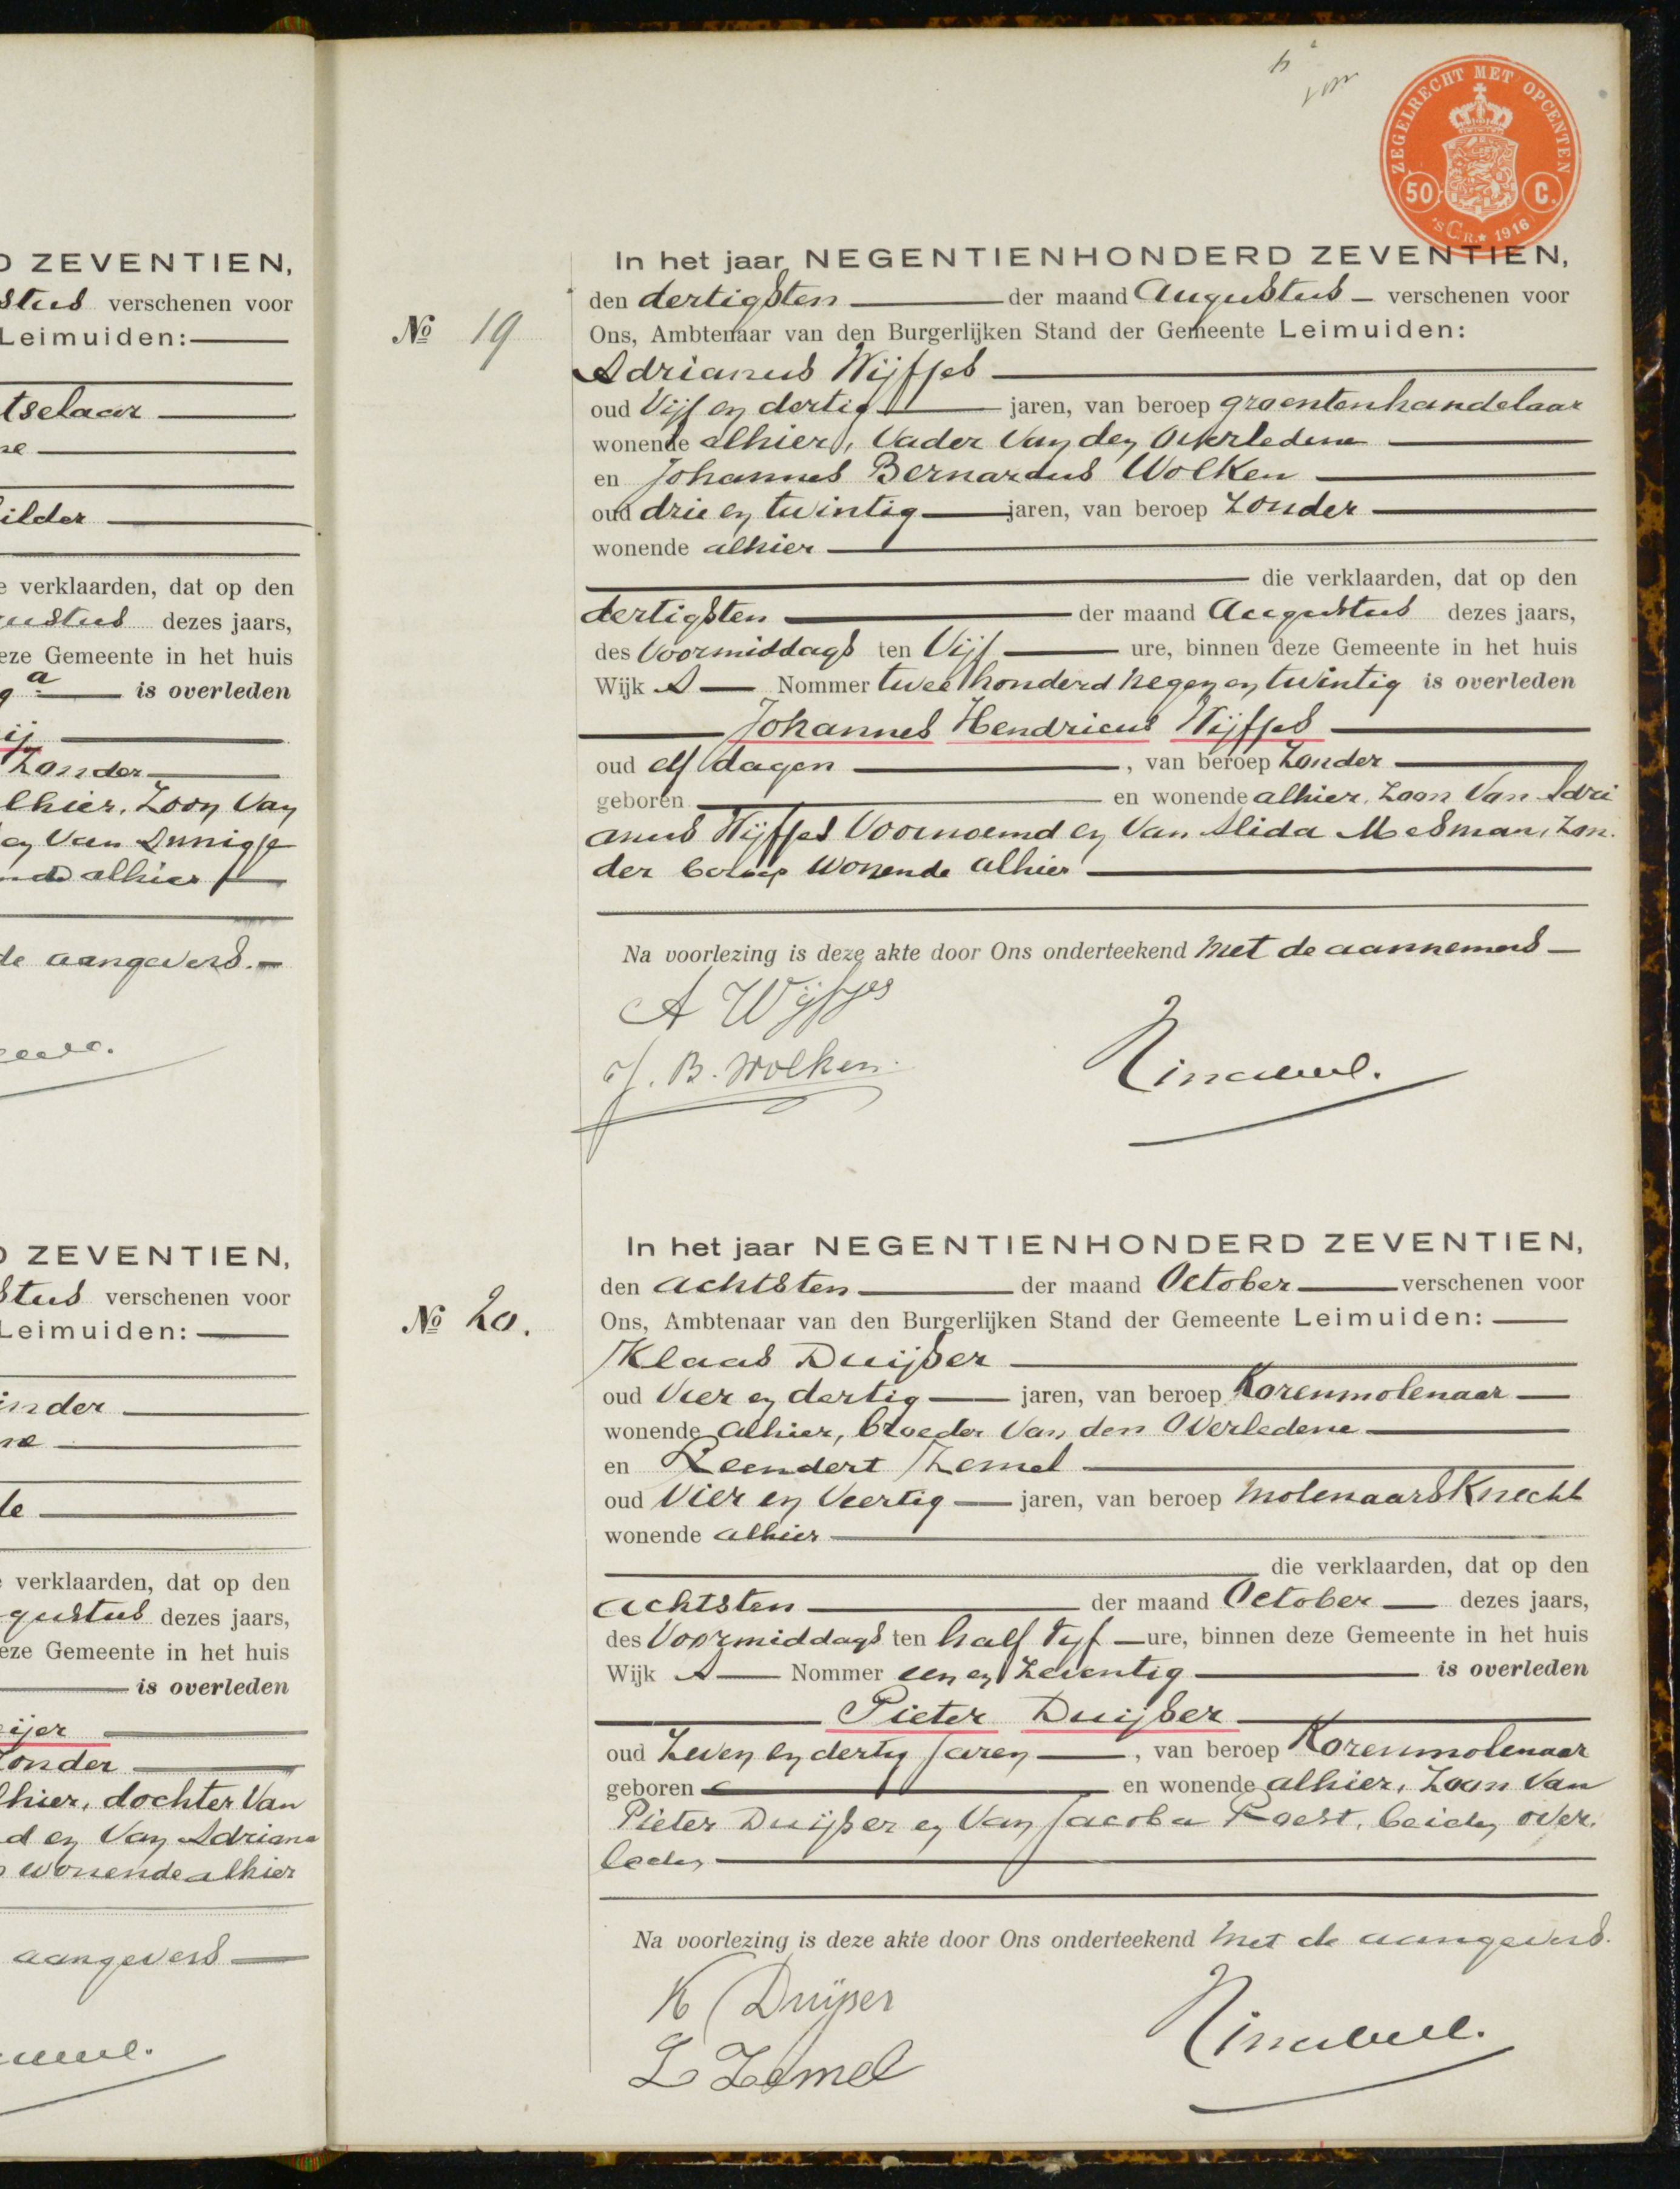 D ZEVENTIEN,
stus verschenen voor
Leimuiden:
tselaar
ne
ilder
e verklaarden, dat op den
gustus dezes jaars,
eze Gemeente in het huis
a is overleden
ij
Zonder
lhier, Zoon Van
en Van Annigje
nde alhier
de aangevers.
D ZEVENTIEN,
stus verschenen voor
Leimuiden:
inder
ne
de
e verklaarden, dat op den
gustus dezes jaars,
eze Gemeente in het huis
is overleden
eijer
Zonder
lhier, dochter Van
d en Van Adriana
wonende alhier
aangevers
ZEGELRECHT MET OPCENTEN
50 C.
'S C.R. * 1916
No 19
In het jaar NEGENTIENHONDERD ZEVENTIEN,
den dertigsten der maand Augustus verschenen voor
Ons, Ambtenaar van den Burgerlijken Stand der Gemeente Leimuiden:
Adrianus Wijfjes
oud Vijf en dertig jaren, van beroep groentenhandelaar
wonende alhier, Vader Van den Overledene
en Johannes Bernardus Wolken
oud drie en twintig jaren, van beroep Zonder
wonende alhier
die verklaarden, dat op den
dertigsten der maand Augustus dezes jaars,
des Voormiddags ten Vijf ure, binnen deze Gemeente in het huis
Wijk A Nommer twee honderd negen en twintig is overleden
Johannes Hendricus Wijfjes
oud elf dagen, van beroep Zonder
geboren en wonende alhier, Zoon Van Adri
anus Wijfjes Voornoemd en Van Alida Mesman, Zon-
der beroep wonende alhier
Na voorlezing is deze akte door Ons onderteekend met de aannemers
A Wijfjes
J. B. Wolken.
No 20.
In het jaar NEGENTIENHONDERD ZEVENTIEN,
den achtsten der maand October verschenen voor
Ons, Ambtenaar van den Burgerlijken Stand der Gemeente Leimuiden:
Klaas Duijser
oud Vier en dertig jaren, van beroep Korenmolenaar
wonende alhier, broeder Van den Overledene
en Leendert Zemel
oud Vier en Veertig jaren, van beroep molenaarsknecht
wonende alhier
die verklaarden, dat op den
achtsten der maand October dezes jaars,
des Voormiddags ten half Vijf ure, binnen deze Gemeente in het huis
Wijk A Nommer een en Zeventig is overleden
Pieter Duijser
oud Zeven en dertig jaren, van beroep Korenmolenaar
geboren en wonende alhier, Zoon Van
Pieter Duijser en Van Jacoba Roest, beiden over-
leden
Na voorlezing is deze akte door Ons onderteekend met de aangevers.
K Duijser
L Zemel